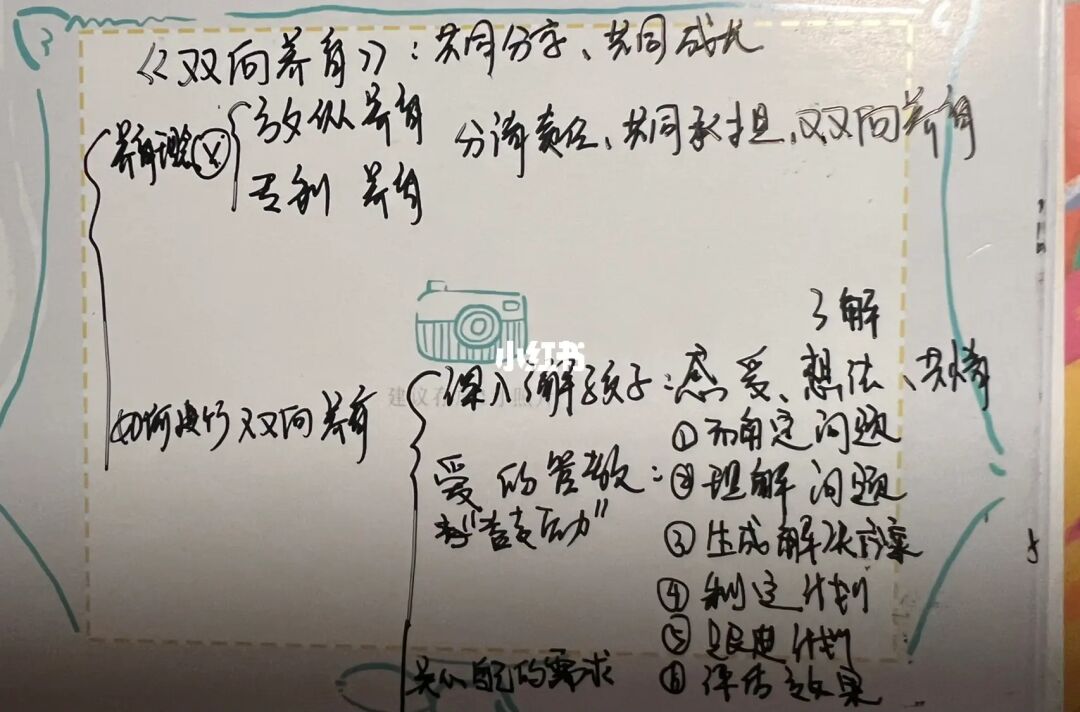 《双向养育》：共同分享、共同成长
养育理念(X) 放纵养育
专制 养育
分清责任、共同承担、双向养育
了解
小红书
深入了解孩子：感受、想法、共情
如何进行双向养育
①确定问题
爱的管教：②理解问题
③生成解决方案
④制定计划
⑤跟进计划
关心自己的需求
⑥评估效果